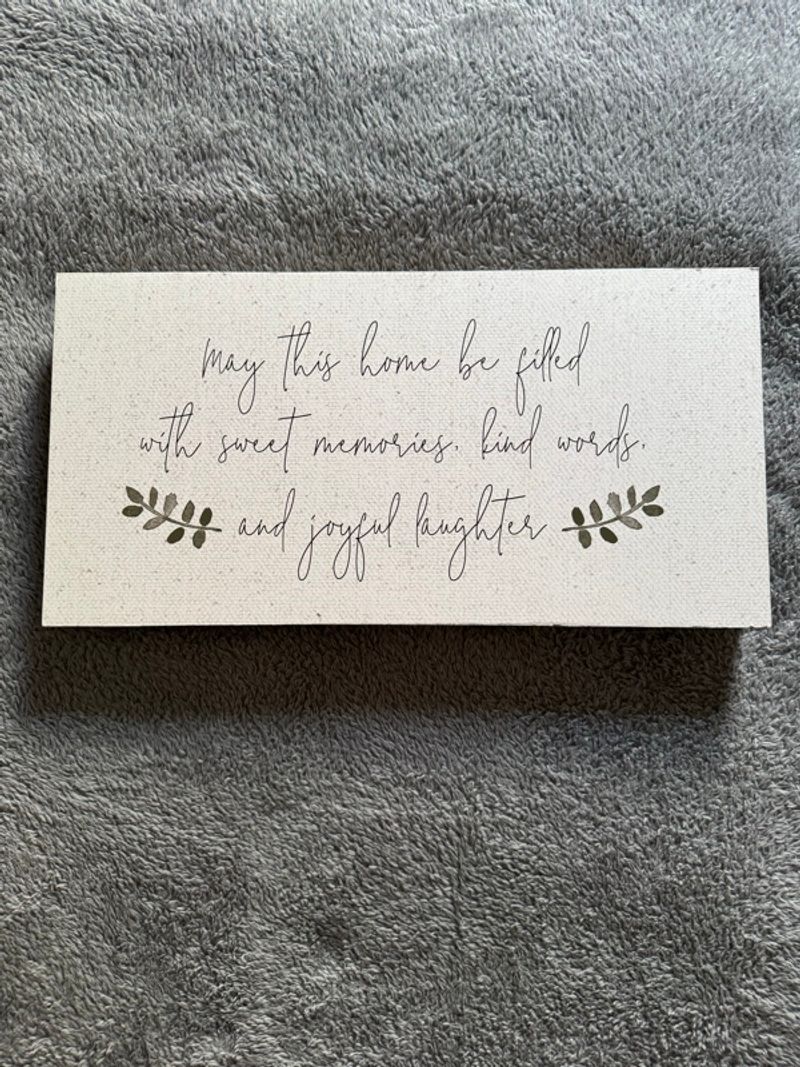 May this home be filled
with sweet memories, kind words,
and joyful laughter